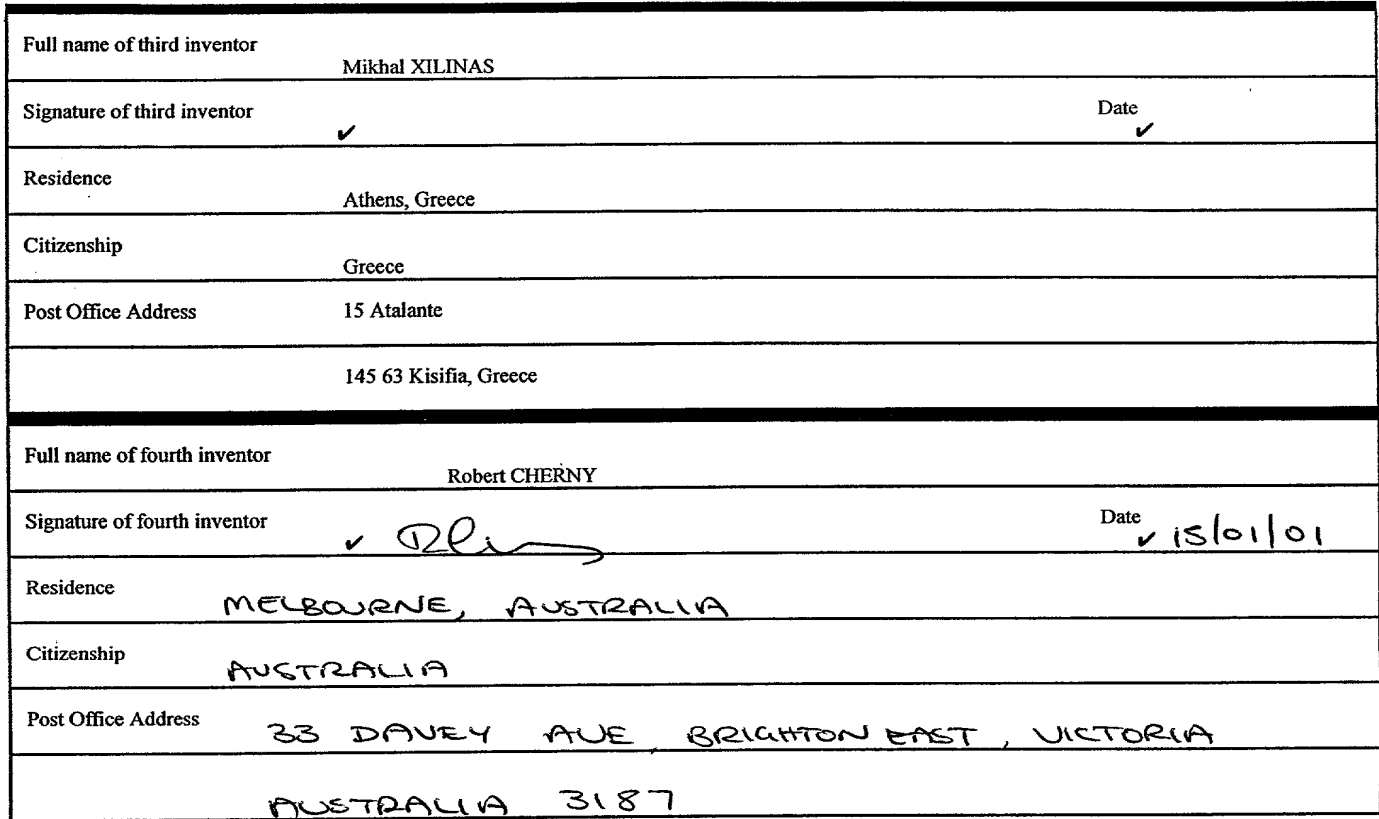 Full name of third inventor
Mikhal XILINAS
Signature of third inventor Date
✓ ✓
Residence
Athens, Greece
Citizenship
Greece
Post Office Address 15 Atalante
145 63 Kisifia, Greece
Full name of fourth inventor
Robert CHERNY
Signature of fourth inventor Date
✓ ✓ 15/01/01
Residence
MELBOURNE, AUSTRALIA
Citizenship
AUSTRALIA
Post Office Address 33 DAVEY AVE, BRIGHTON EAST, VICTORIA
AUSTRALIA 3187